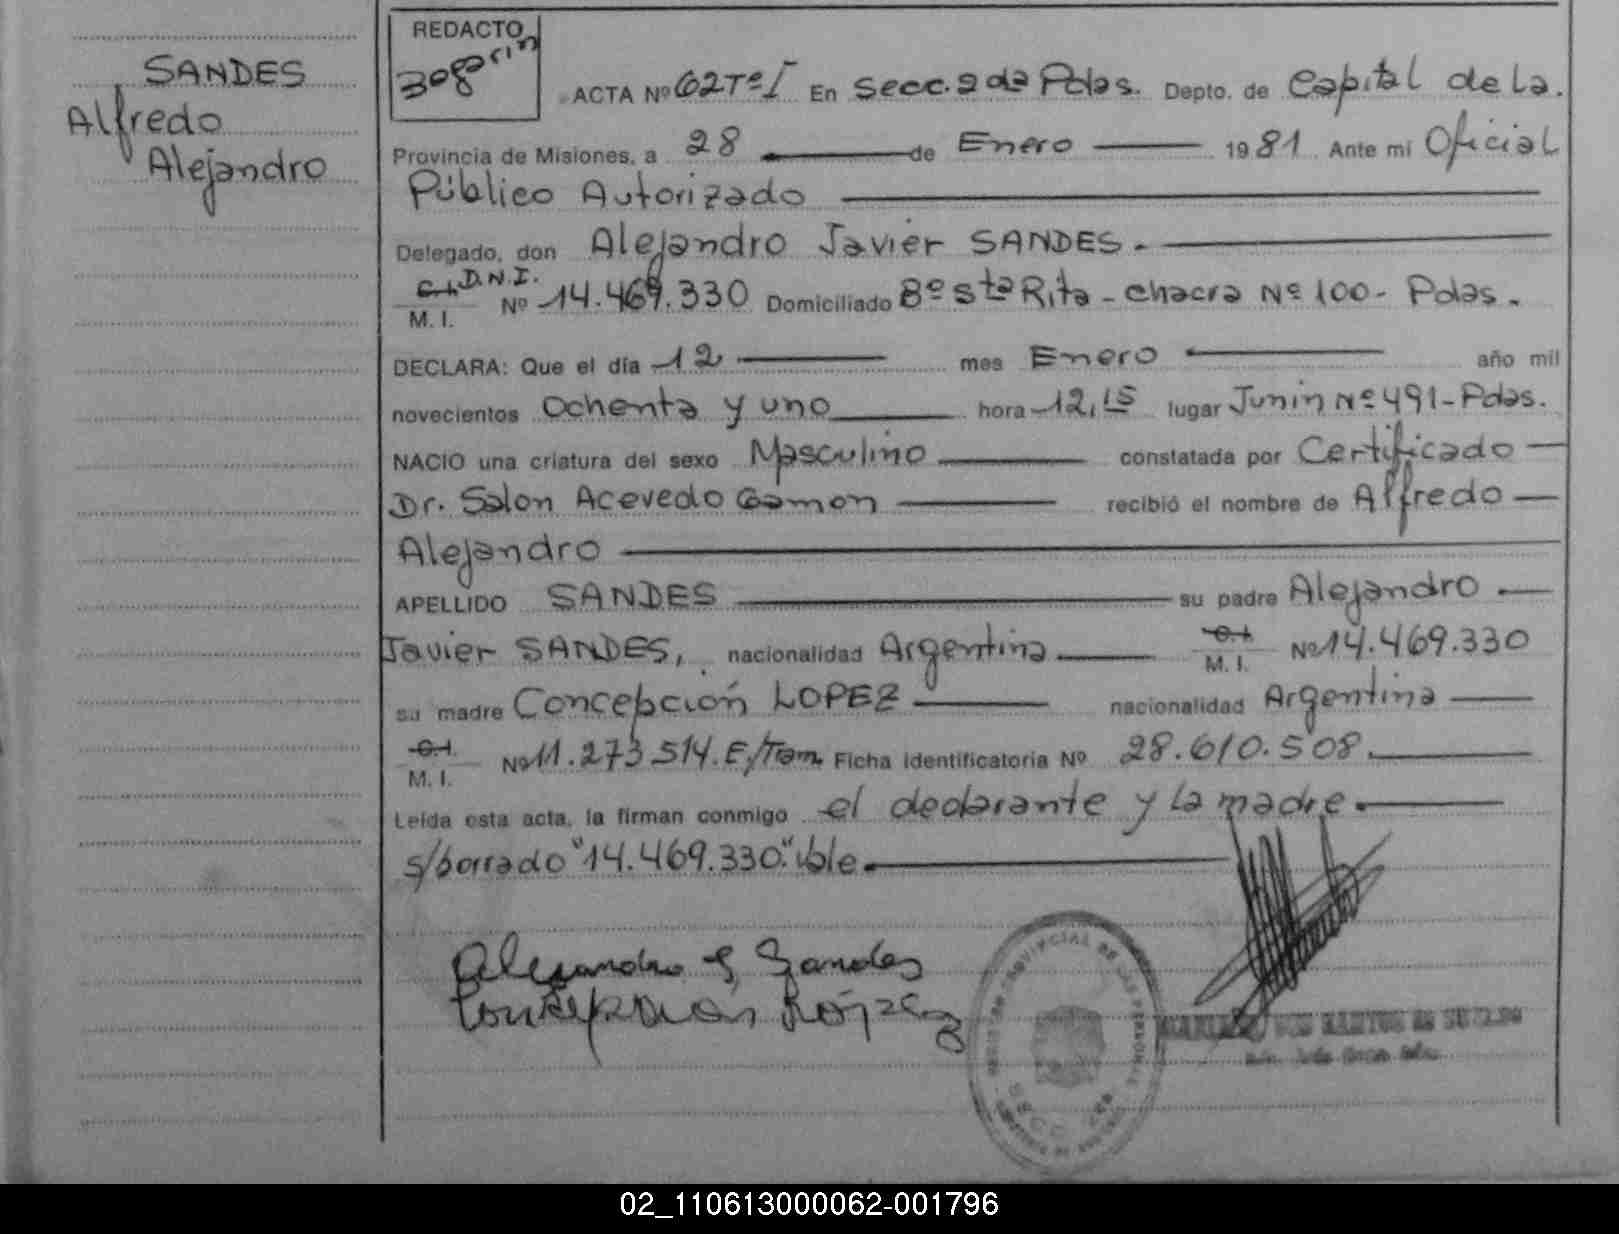 SANDES
Alfredo
Alejandro
REDACTO
ACTA Nº 62 Tº I En Secc. 2 da Pdas. Depto. de Capital de La.
Provincia de Misiones, a 28 de Enero 1981 Ante mi Oficial
Público Autorizado
Delegado, don Alejandro Javier SANDES.
C.I. D.N.I.
M. I. Nº 14.469.330 Domiciliado Bº Sta Rita - Chacra Nº 100 - Pdas.
DECLARA: Que el día 12 mes Enero año mil
novecientos Ochenta y uno hora 12,15 lugar Junin Nº 491 - Pdas.
NACIO una criatura del sexo Masculino constatada por Certificado
Dr. Salon Acevedo Gamon recibió el nombre de Alfredo
Alejandro
APELLIDO SANDES su padre Alejandro
Javier SANDES, nacionalidad Argentina C.I. M. I. Nº 14.469.330
su madre Concepción LOPEZ nacionalidad Argentina
C.I. M. I. Nº 11.273.514. E/Tram. Ficha Identificatoria Nº 28.610.508.
Leída esta acta, la firman conmigo el declarante y la madre.
s/borrado "14.469.330." Vale.
Alejandro J Sandes
Concepción López
SECC. 2da
02_110613000062-001796